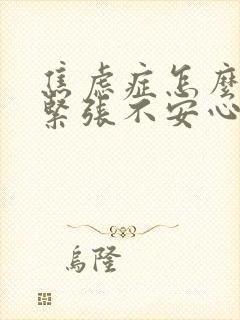 焦虑症怎麼
緊張不安心
烏隆